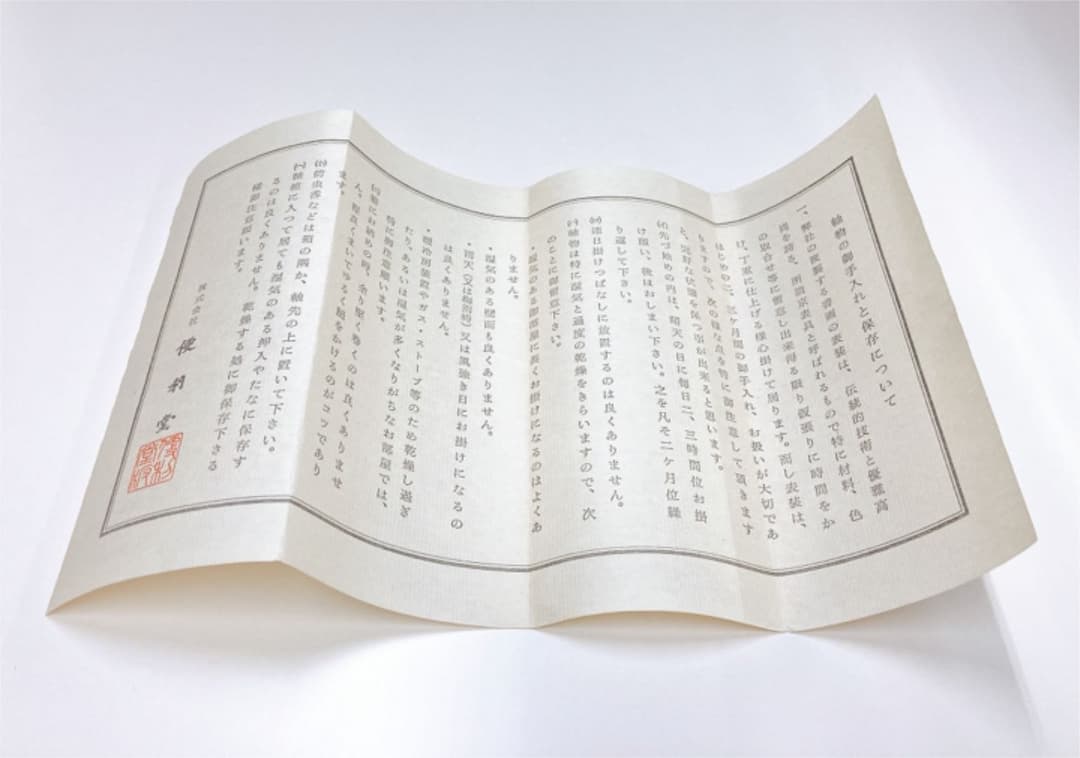 軸物の御手入れと保存について
一、弊社の複製する書画の表装は、伝統的技術と優雅高
尚を誇る、所謂京表具と呼ばれるもので特に材料、色
の取合せ等に留意し出来得る限り仮張りに時間をか
け、丁寧に仕上げる様心掛けて居ります。而し表装は、
はじめの二、三ヶ月間の御手入れ、お扱いが大切であ
りますので、次の様な点を特に御注意して頂きます
と、完好な状態を保つ事が出来ると思います。
(イ)先づ始めの内は、晴天の日に毎日二、三時間位お掛
け願い、後はおしまい下さい。之を凡そ二ヶ月位繰
り返して下さい。
(ロ)連日掛けつぱなしに放置するのは良くありません。
(ハ)軸物は特に湿気と過度の乾燥をきらいますので、次
のことに御留意下さい。
・湿気のある御部屋に長くお掛けになるのはよくあ
りません。
・湿気のある壁面も良くありません。
・雨天(又は梅雨時)又は風強き日にお掛けになるの
は良くありません。
・暖冷房装置やガス・ストーブ等のため乾燥し過ぎ
たり、あるいは湿気が多くなりがちなお部屋では、
特に御注意願います。
(ニ)箱にお納めの時、余り堅く巻くのは良くありませ
ん。程良くまいてゆるく紐をかけるのがコツであり
ます。
(ホ)防虫香などは箱の隅か、軸先の上に置いて下さい。
(ヘ)軸箱に入つて居ても湿気のある押入やたなに保存す
るのは良くありません。乾燥する処に御保存下さる
様御注意願います。
株式会社 便利堂